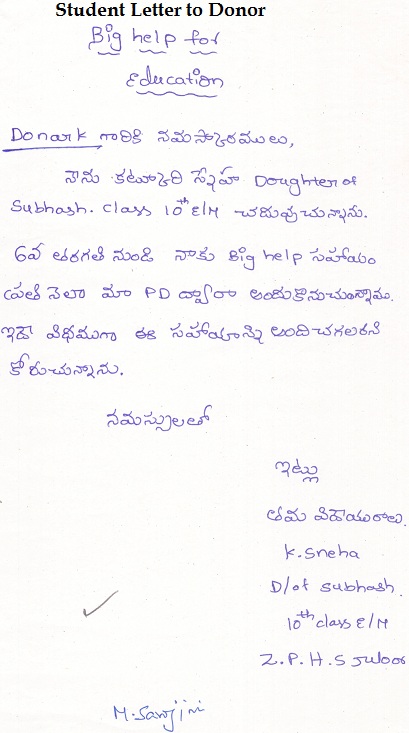 Student Letter to Donor
Big help for
Education
Donark గారికి నమస్కారములు,
నేను కటూకారి స్నేహ Doughter of
Subhash. class 10th E/M చదువుచున్నాను.
6వ తరగతి నుండి నాకు Big help సహాయం
ప్రతి నెలా మా PD ద్వారా అందుకొనుచున్నాను.
ఇదే విధముగా ఈ సహాయాన్ని అందించగలరని
కోరుచున్నాను.
నమస్సులతో
ఇట్లు
తమ విధేయురాలు.
K. Sneha
D/of Subhash.
10th class E/M
Z.P.H.S Juloor
M. Sanjini